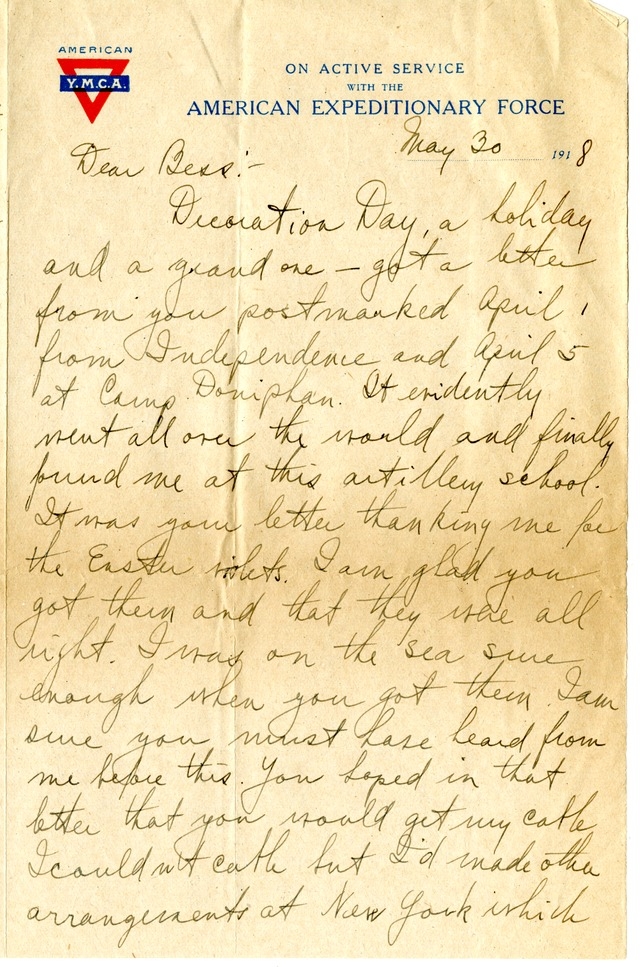 AMERICAN
Y.M.C.A.
ON ACTIVE SERVICE
WITH THE
AMERICAN EXPEDITIONARY FORCE
May 30 1918
Dear Bess:-
Decoration Day, a holiday
and a grand one – got a letter
from you postmarked April 1
from Independence and April 5
at Camp Doniphan. It evidently
went all over the world and finally
found me at this artillery school.
It was your letter thanking me for
the Easter violets. I am glad you
got them and that they were all
right. I was on the sea sure
enough when you got them. I am
sure you must have heard from
me before this. You hoped in that
letter that you would get my cable
I couldn't cable but I'd made other
arrangements at New York which